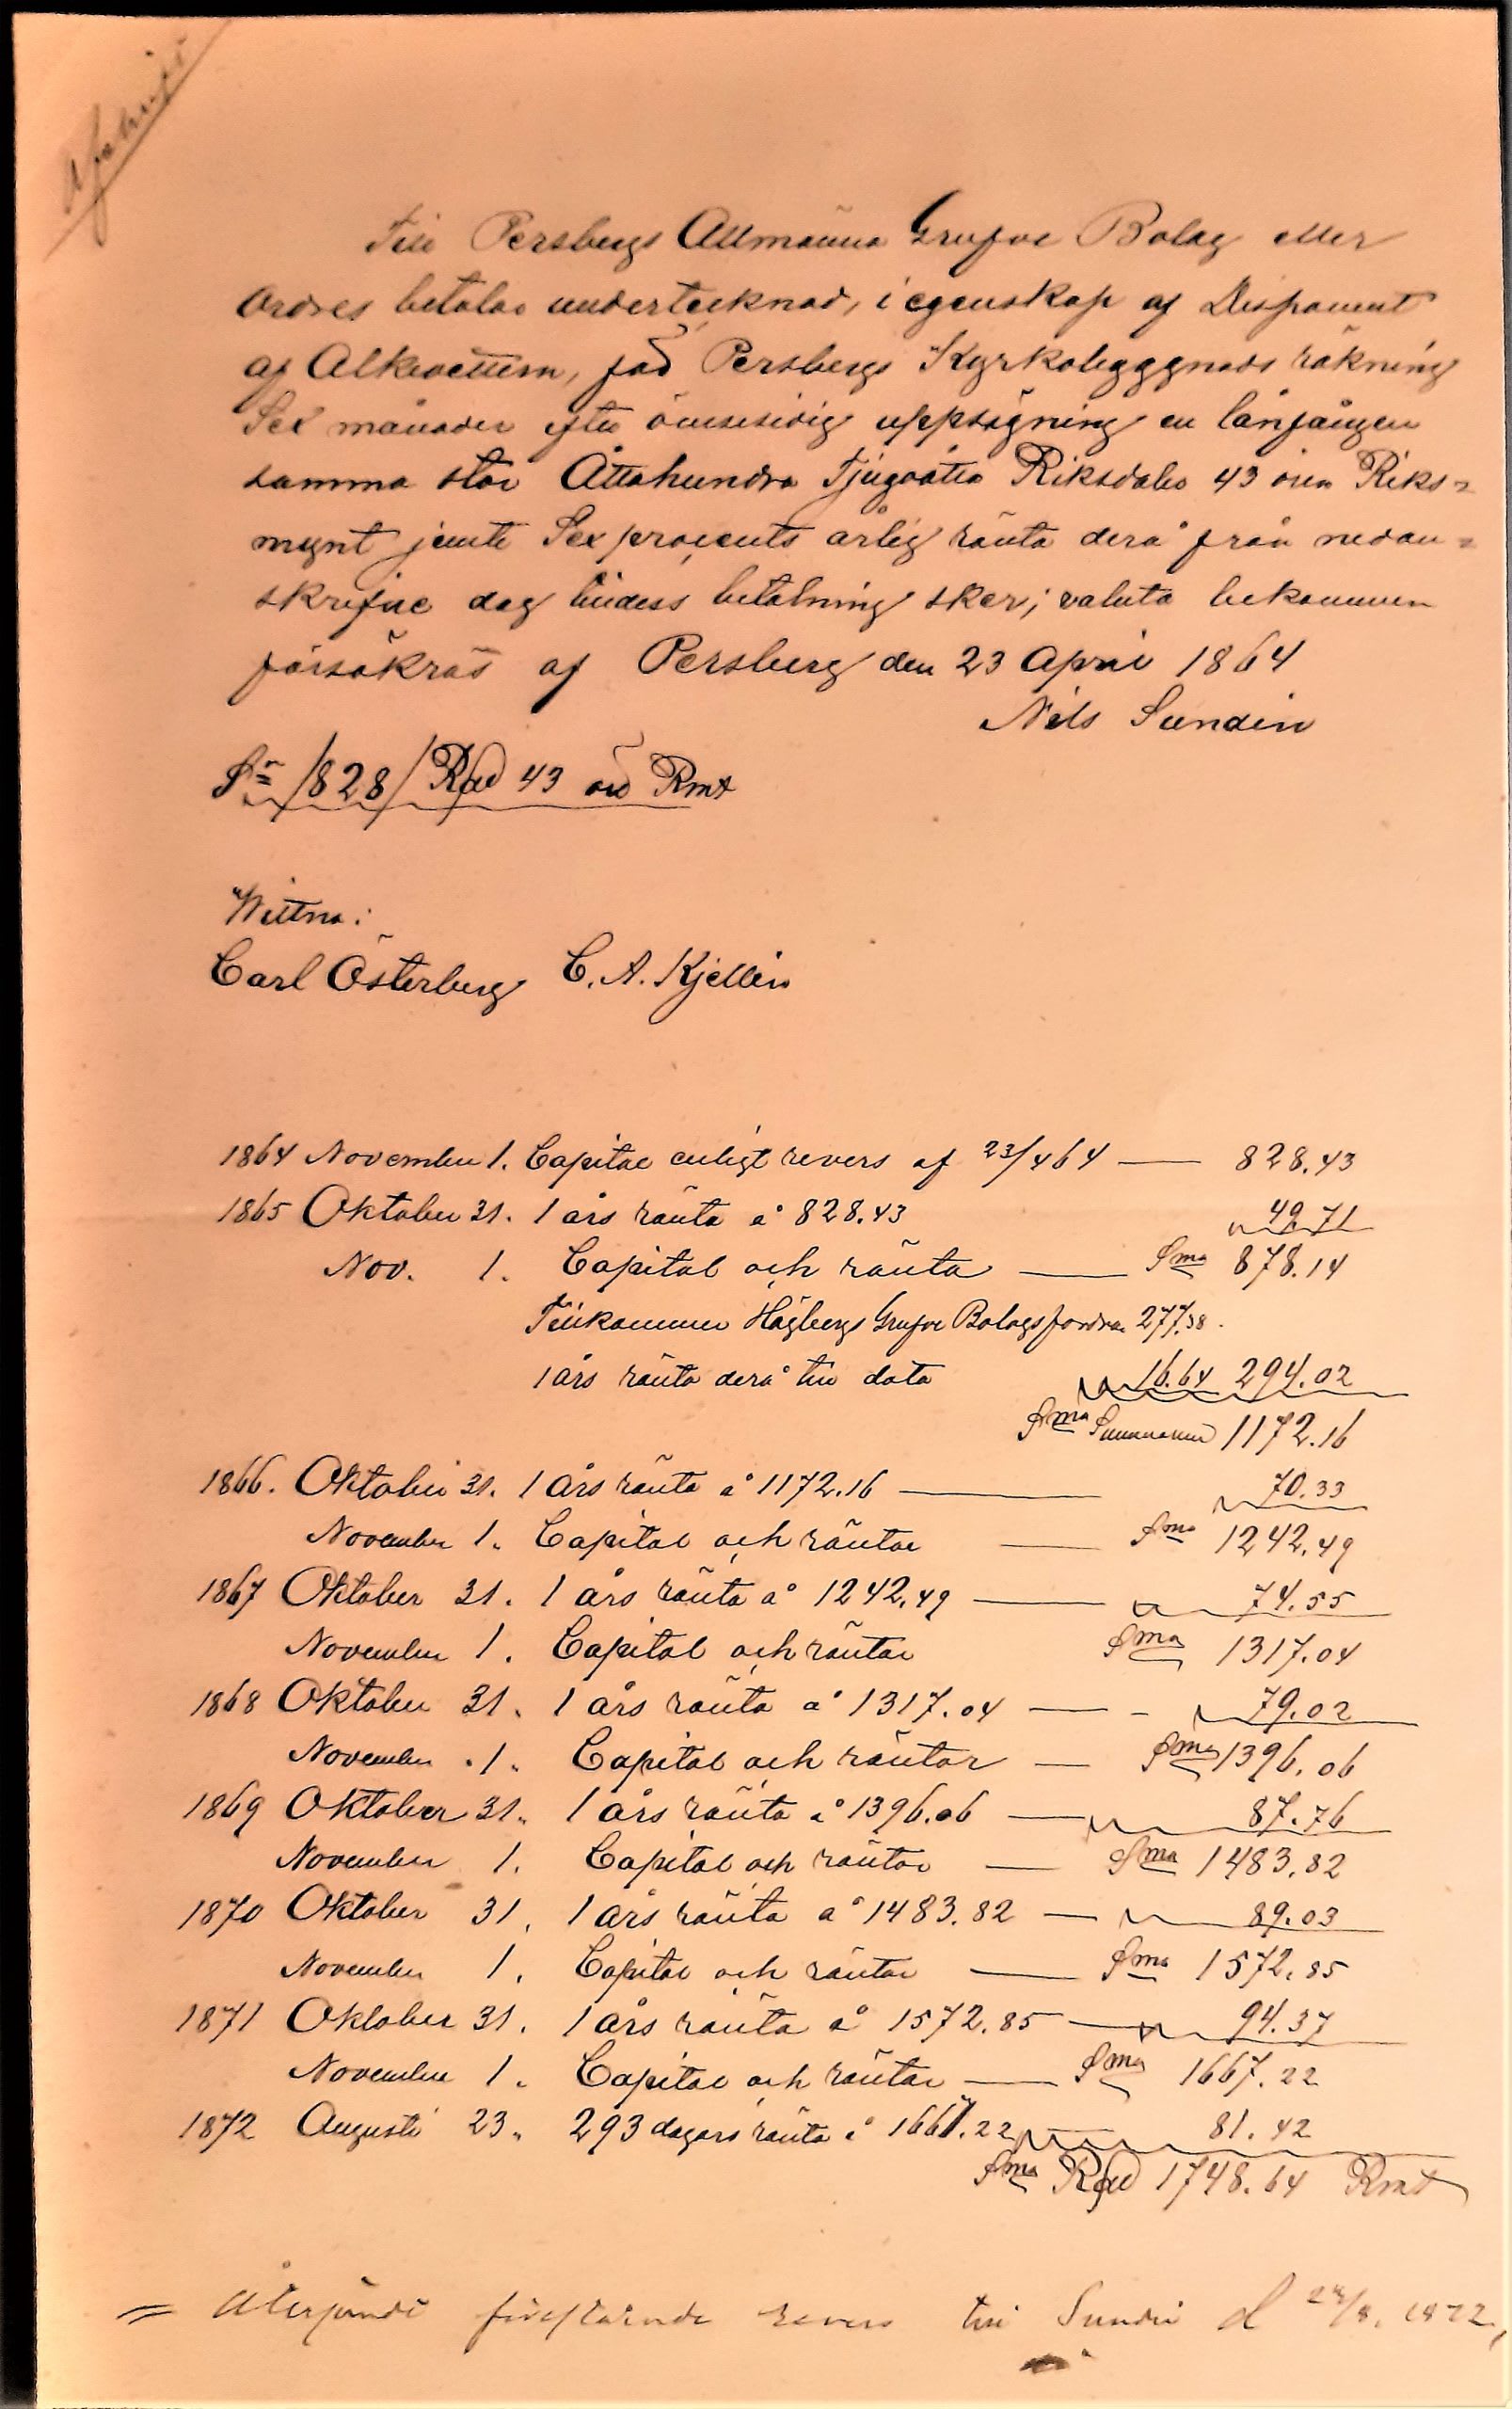 Afskrift
Till Persbergs Allmänna Grufve Bolag eller
Ordres betalar undertecknad, i egenskap af Disponent
af Alkvettern, för Persbergs Kyrkobyggnads räkning
Sex månader efter ömsesidig uppsägning en lånfången
summa stor Åttahundra Tjugoåtta Riksdaler 43 öre Riks=
mynt jemte Sex procents årlig ränta derå från nedan=
skrifne dag tildess betalning sker; valuta bekommen
försäkras af Persberg den 23 April 1864
Nils Sundin
Sr /828/ Rdr 43 öre Rmt
Wittna:
Carl Österberg C. A. Kjellin
1864 November 1. Capital enligt revers af 23/4 64 — 828.43
1865 Oktober 31. 1 års ränta å 828.43 49.71
Nov. 1. Capital och ränta — Sma 878.14
Tillkommer Högbergs Grufve Bolags fordran 277.38.
1 års ränta derå till dato 16.64 294.02
Sma Summarum 1172.16
1866. Oktober 31. 1 års ränta å 1172.16 — 70.33
November 1. Capital och räntor — Sma 1242.49
1867 Oktober 31. 1 års ränta å 1242.49 — 74.55
November 1. Capital och räntor Sma 1317.04
1868 Oktober 31. 1 års ränta å 1317.04 — - 79.02
November 1. Capital och räntor — Sma 1396.06
1869 Oktober 31. 1 års ränta å 1396.06 — 87.76
November 1. Capital och räntor — Sma 1483.82
1870 Oktober 31. 1 års ränta å 1483.82 — 89.03
November 1. Capital och räntor — Sma 1572.85
1871 Oktober 31. 1 års ränta å 1572.85 — 94.37
November 1. Capital och räntor — Sma 1667.22
1872 Augusti 23. 293 dagars ränta å 1667.22 81.42
Sma Rdr 1748.64 Rmt
= Återsändt förestående revers till Sundin d 24/8. 1872,